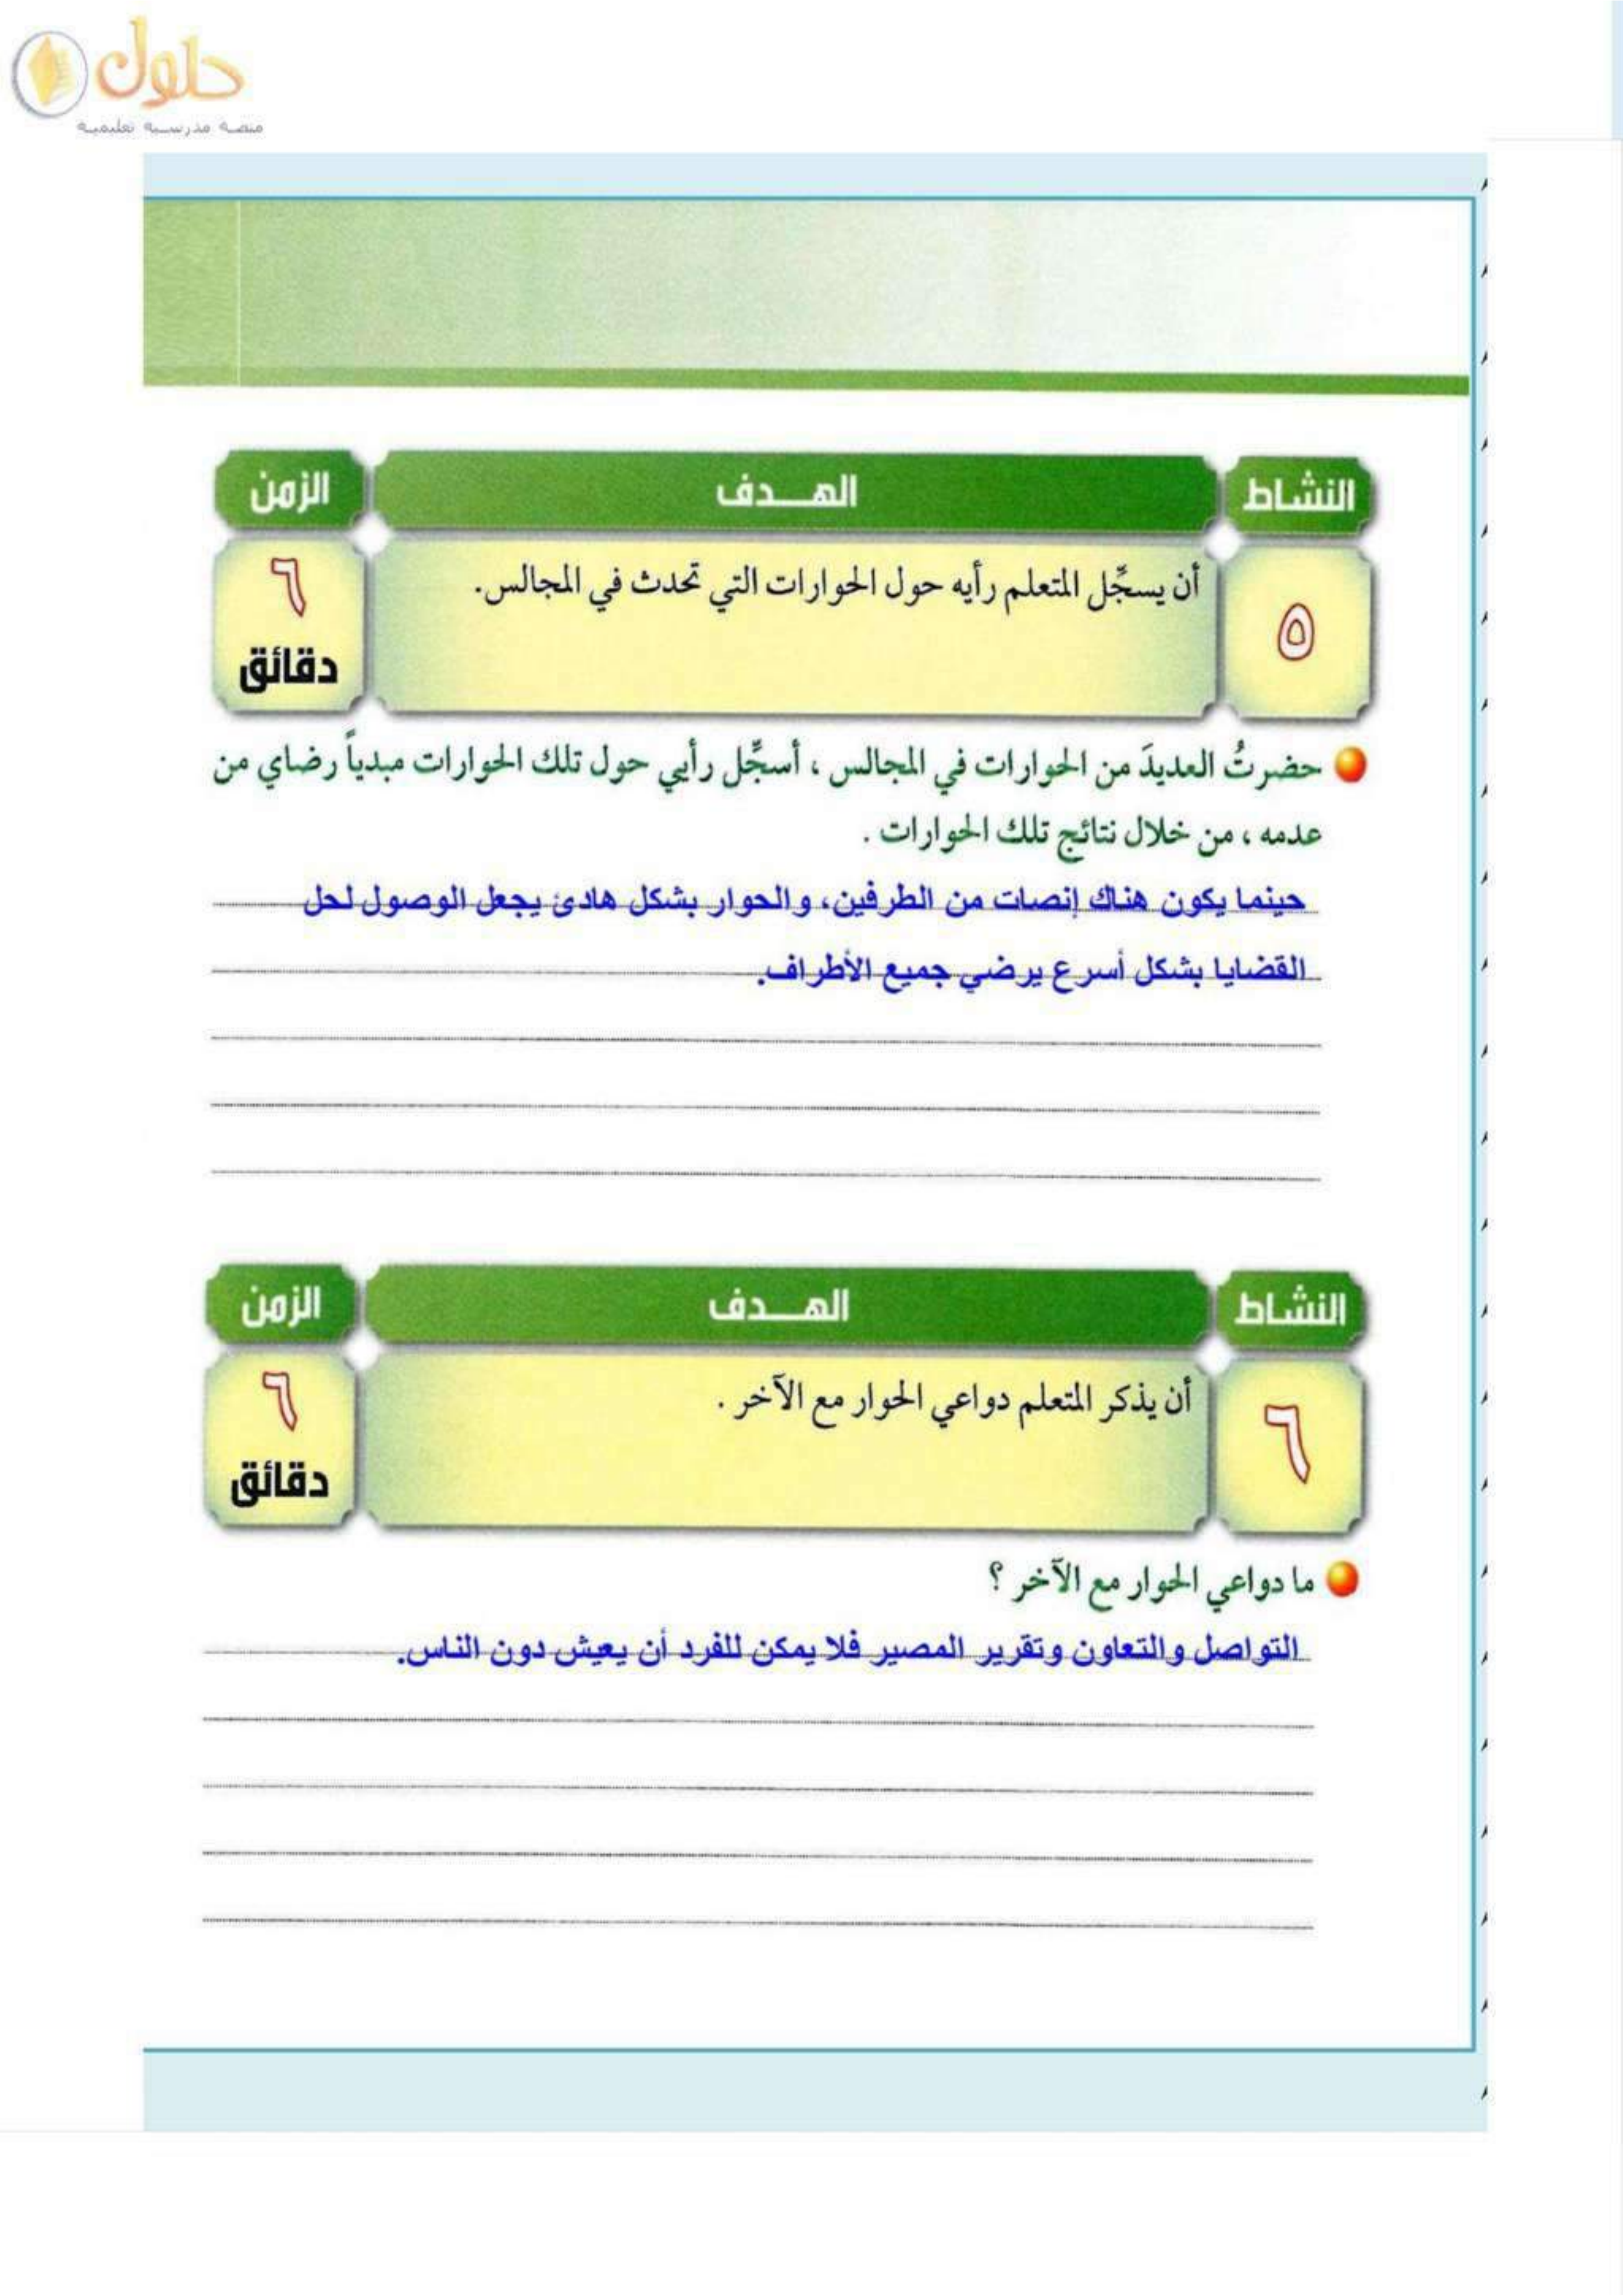 حلول
منصة مدرسية تعليمية
النشاط الهـــدف الزمن
٥ أن يسجِّل المتعلم رأيه حول الحوارات التي تحدث في المجالس. ٦ دقائق
حضرتُ العديدَ من الحوارات في المجالس ، أسجِّل رأيي حول تلك الحوارات مبدياً رضاي من
عدمه ، من خلال نتائج تلك الحوارات .
حينما يكون هناك إنصات من الطرفين، والحوار بشكل هادئ يجعل الوصول لحل
القضايا بشكل أسرع يرضي جميع الأطراف.
النشاط الهـــدف الزمن
٦ أن يذكر المتعلم دواعي الحوار مع الآخر . ٦ دقائق
ما دواعي الحوار مع الآخر ؟
التواصل والتعاون وتقرير المصير فلا يمكن للفرد أن يعيش دون الناس.